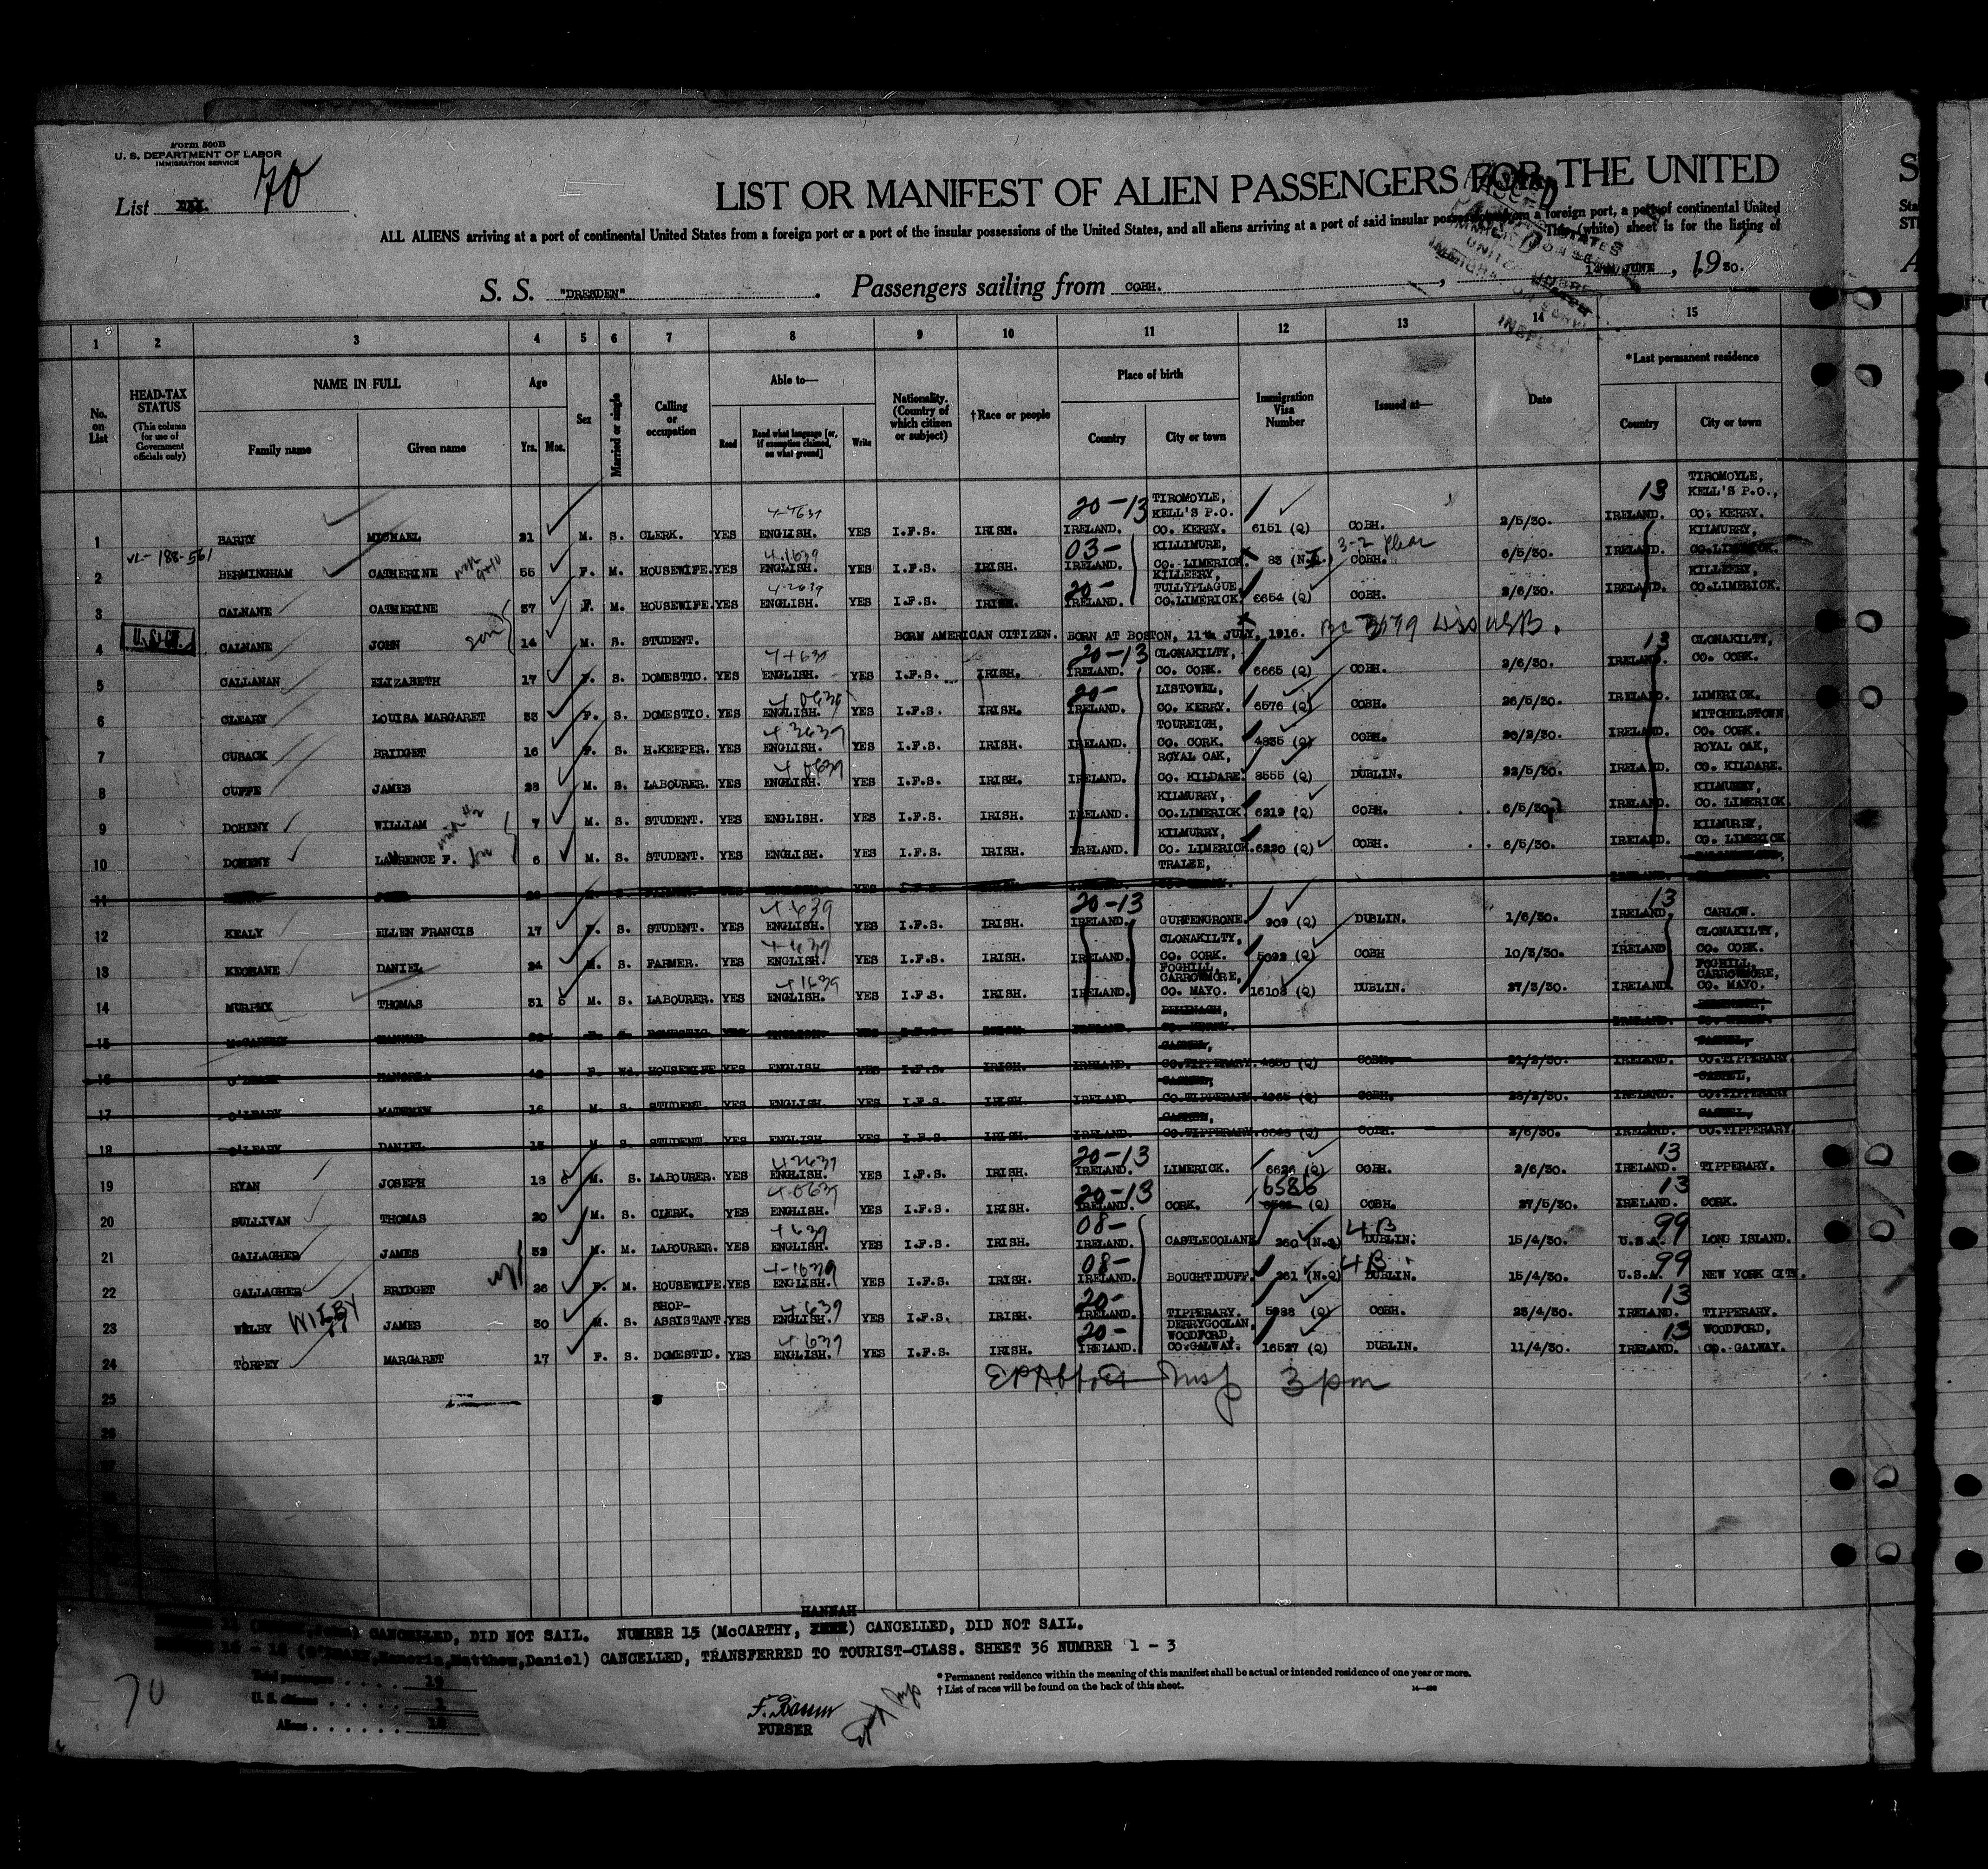 Form 500B
U. S. DEPARTMENT OF LABOR
IMMIGRATION SERVICE
List 70
LIST OR MANIFEST OF ALIEN PASSENGERS FOR THE UNITED
ALL ALIENS arriving at a port of continental United States from a foreign port or a port of the insular possessions of the United States, and all aliens arriving at a port of said insular possessions from a foreign port, a port of continental United
This (white) sheet is for the listing of
S. S. "DRESDEN" . Passengers sailing from COBH. , JUNE , 1930.
1 2 3 4 5 6 7 8 9 10 11 12 13 14 15
No. on List
HEAD-TAX STATUS (This column for use of Government officials only)
NAME IN FULL
Family name Given name
Age
Yrs. Mos.
Sex
Married or single
Calling or occupation
Able to—
Read Read what language [or, if exemption claimed, on what ground] Write
Nationality. (Country of which citizen or subject)
†Race or people
Place of birth
Country City or town
Immigration Visa Number
Issued at—
Date
*Last permanent residence
Country City or town
1 BARRY MICHAEL 21 M. S. CLERK. YES ENGLISH. YES I.F.S. IRISH. 20-13 IRELAND. TIROMOYLE, KELL'S P.O. CO. KERRY. 6151 (Q) COBH. 2/5/30. 13 IRELAND. TIROMOYLE, KELL'S P.O., CO. KERRY.
2 BERMINGHAM CATHERINE 55 F. M. HOUSEWIFE. YES ENGLISH. YES I.F.S. IRISH. 03- IRELAND. KILLIMURE, CO. LIMERICK. 83 COBH. 6/5/30. IRELAND. KILMURRY, CO.LIMERICK.
3 CALNANE CATHERINE 37 F. M. HOUSEWIFE. YES ENGLISH. YES I.F.S. IRISH. 20- IRELAND. KILLEERY, TULLYPLAGUE CO.LIMERICK. 6654 (Q) COBH. 2/6/30. IRELAND. KILLEERY, CO.LIMERICK.
4 CALNANE JOHN son 14 M. S. STUDENT. BORN AMERICAN CITIZEN. BORN AT BOSTON, 11th JULY, 1916.
5 CALLANAN ELIZABETH 17 F. S. DOMESTIC. YES ENGLISH. YES I.F.S. IRISH. 20-13 IRELAND. CLONAKILTY, CO. CORK. 6665 (Q) COBH. 2/6/30. 13 IRELAND. CLONAKILTY, CO. CORK.
6 CLEARY LOUISA MARGARET 33 F. S. DOMESTIC. YES ENGLISH. YES I.F.S. IRISH. 20- IRELAND. LISTOWEL, CO. KERRY. 6576 (Q) COBH. 26/5/30. IRELAND. LIMERICK.
7 CUSACK BRIDGET 16 F. S. H.KEEPER. YES ENGLISH. YES I.F.S. IRISH. IRELAND. TOUREIGH, CO. CORK. 4835 (Q) COBH. 20/2/30. IRELAND. MITCHELSTOWN, CO. CORK.
8 CUFFE JAMES 23 M. S. LABOURER. YES ENGLISH. YES I.F.S. IRISH. IRELAND. ROYAL OAK, CO. KILDARE. 8555 (Q) DUBLIN. 22/5/30. IRELAND. ROYAL OAK, CO. KILDARE.
9 DOHENY WILLIAM 7 M. S. STUDENT. YES ENGLISH. YES I.F.S. IRISH. IRELAND. KILMURRY, CO.LIMERICK 6219 (Q) COBH. 6/5/30. IRELAND. KILMURRY, CO. LIMERICK.
10 DOHENY LAWRENCE F. 6 M. S. STUDENT. YES ENGLISH. YES I.F.S. IRISH. IRELAND. KILMURRY, CO. LIMERICK. 6220 (Q) COBH. 6/5/30. IRELAND. KILMURRY, CO. LIMERICK
11 YES TRALEE,
12 KEALY ELLEN FRANCIS 17 F. S. STUDENT. YES ENGLISH. YES I.F.S. IRISH. 20-13 IRELAND. GURTENGRONE. 909 (Q) DUBLIN. 1/6/30. 13 IRELAND. CARLOW.
13 KEOHANE DANIEL 24 M. S. FARMER. YES ENGLISH. YES I.F.S. IRISH. IRELAND. CLONAKILTY, CO. CORK. 5092 (Q) COBH 10/3/30. IRELAND CLONAKILTY, CO. CORK.
14 MURPHY THOMAS 31 5 M. S. LABOURER. YES ENGLISH. YES I.F.S. IRISH. IRELAND. FOGHILL, CARROWMORE, CO. MAYO. 16108 (Q) DUBLIN. 27/3/30. IRELAND. FOGHILL, CARROWMORE, CO. MAYO.
15 McCARTHY HANNAH DOMESTIC
16 O'LEARY F. Wd. HOUSEWIFE YES ENGLISH YES I.F.S. IRISH. IRELAND. CASHEL, CO.TIPPERARY. COBH. 21/2/30. IRELAND. CASHEL, CO.TIPPERARY.
17 O'LEARY MATTHEW 16 M. S. STUDENT YES ENGLISH. YES I.F.S. IRISH. IRELAND. CASHEL, CO.TIPPERARY. COBH. IRELAND. CASHEL, CO.TIPPERARY
18 O'LEARY DANIEL M. S. STUDENT YES ENGLISH YES I.F.S. IRISH. IRELAND. CASHEL, CO.TIPPERARY. COBH. 2/6/30. IRELAND. CASHEL, CO.TIPPERARY.
19 RYAN JOSEPH 18 6 M. S. LABOURER. YES ENGLISH. YES I.F.S. IRISH. 20-13 IRELAND. LIMERICK. 6626 (Q) COBH. 2/6/30. 13 IRELAND. TIPPERARY.
20 SULLIVAN THOMAS 20 M. S. CLERK. YES ENGLISH. YES I.F.S. IRISH. 20-13 IRELAND. CORK. 6586 (Q) COBH. 27/5/30. 13 IRELAND. CORK.
21 GALLAGHER JAMES 32 M. M. LABOURER. YES ENGLISH. YES I.F.S. IRISH. 08- IRELAND. CASTLECOLANE 260 (N.Q) 4B DUBLIN. 15/4/30. 99 U.S.A. LONG ISLAND.
22 GALLAGHER BRIDGET 26 F. M. HOUSEWIFE. YES ENGLISH. YES I.F.S. IRISH. 08- IRELAND. BOUGHTDUFF. 261 (N.Q) 4B DUBLIN. 15/4/30. 99 U.S.A. NEW YORK CITY.
23 WELBY WILBY JAMES 30 M. S. SHOP-ASSISTANT. YES ENGLISH. YES I.F.S. IRISH. 20- IRELAND. TIPPERARY. 5988 (Q) COBH. 25/4/30. 13 IRELAND. TIPPERARY.
24 TORPEY MARGARET 17 F. S. DOMESTIC. YES ENGLISH. YES I.F.S. IRISH. 20- IRELAND. DERRYGOOLAN, WOODFORD, CO.GALWAY. 16527 (Q) DUBLIN. 11/4/30. 13 IRELAND. WOODFORD, CO. GALWAY.
Insp 3 pm
25
26
27
HANNAH
CANCELLED, DID NOT SAIL. NUMBER 15 (McCARTHY, ) CANCELLED, DID NOT SAIL.
16 - 18 (O'LEARY,Honoria,Matthew,Daniel) CANCELLED, TRANSFERRED TO TOURIST-CLASS. SHEET 36 NUMBER 1 - 3
Total passengers . . . . 19
U. S. citizens . . . . . 1
Aliens . . . . . . 18
70
PURSER
* Permanent residence within the meaning of this manifest shall be actual or intended residence of one year or more.
† List of races will be found on the back of this sheet.